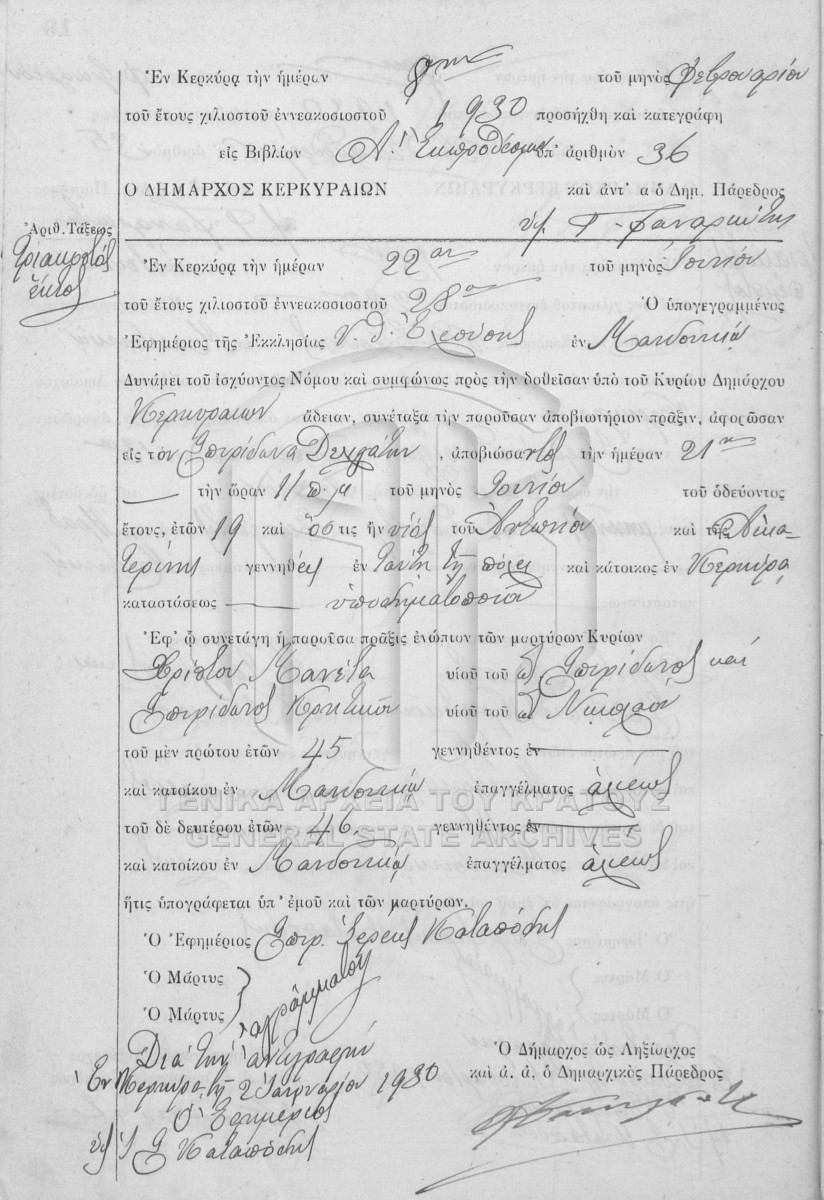 Ἐν Κερκύρᾳ τὴν ἡμέραν 8ην τοῦ μηνὸς Φεβρουαρίου
τοῦ ἔτους χιλιοστοῦ ἐννεακοσιοστοῦ 1930 προσήχθη καὶ κατεγράφη
εἰς Βιβλίον Α' Ἐκπρόθεσμα ὑπ' ἀριθμὸν 36
Ο ΔΗΜΑΡΧΟΣ ΚΕΡΚΥΡΑΙΩΝ καὶ ἀντ' α ὁ Δημ. Πάρεδρος
Ἀριθ. Τάξεως
τριακοστός
ἕκτος
Ἐν Κερκύρᾳ τὴν ἡμέραν 22αν τοῦ μηνὸς Ἰουνίου
τοῦ ἔτους χιλιοστοῦ ἐννεακοσιοστοῦ 28ου Ὁ ὑπογεγραμμένος
Ἐφημέριος τῆς Ἐκκλησίας Υ. Θ. Ἐλεούσης ἐν Μανδουκίῳ
Δυνάμει τοῦ ἰσχύοντος Νόμου καὶ συμφώνως πρὸς τὴν δοθεῖσαν ὑπὸ τοῦ Κυρίου Δημάρχου
Κερκυραίων ἄδειαν, συνέταξα τὴν παροῦσαν ἀποβιωτήριον πρᾶξιν, ἀφορῶσαν
εἰς τὸν Σπυρίδωνα , ἀποβιώσαντος τὴν ἡμέραν 21ην
τὴν ὥραν 11 π.μ τοῦ μηνὸς Ἰουνίου τοῦ ὁδεύοντος
ἔτους, ἐτῶν 19 καὶ ὅστις ἦν υἱὸς τοῦ Ἀντωνίου καὶ τῆς Αἰκα-
τερίνης γεννηθεὶς ἐν ταύτῃ τῇ πόλει καὶ κάτοικος ἐν Κερκύρᾳ
καταστάσεως ὑποδηματοποιοῦ
Ἐφ' ᾧ συνετάγη ἡ παροῦσα πρᾶξις ἐνώπιον τῶν μαρτύρων Κυρίων
Χρίστου Μανέτα υἱοῦ τοῦ Σπυρίδωνος καὶ
Σπυρίδωνος Κρητικοῦ υἱοῦ τοῦ Νικολάου
τοῦ μὲν πρώτου ἐτῶν 45 γεννηθέντος ἐν
καὶ κατοίκου ἐν Μανδουκίῳ ἐπαγγέλματος ἁλιέως
ΓΕΝΙΚΑ ΑΡΧΕΙΑ ΤΟΥ ΚΡΑΤΟΥΣ
τοῦ δὲ δευτέρου ἐτῶν 46 γεννηθέντος ἐν
GENERAL STATE ARCHIVES
καὶ κατοίκου ἐν Μανδουκίῳ ἐπαγγέλματος ἁλιέως
ἥτις ὑπογράφεται ὑπ' ἐμοῦ καὶ τῶν μαρτύρων.
Ὁ Ἐφημέριος Σπυρ. Ἱερεὺς Καταπόδης
Ὁ Μάρτυς
ἀγράμματοι
Ὁ Μάρτυς
Διὰ τὴν ἀντιγραφὴν
Ἐν Κερκύρᾳ τῇ 2 Ἰανουαρίου 1930
Ὁ Ἐφημέριος
Καταπόδης
Ὁ Δήμαρχος ὡς Ληξίαρχος
καὶ ἀ. ἀ. ὁ Δημαρχικὸς Πάρεδρος